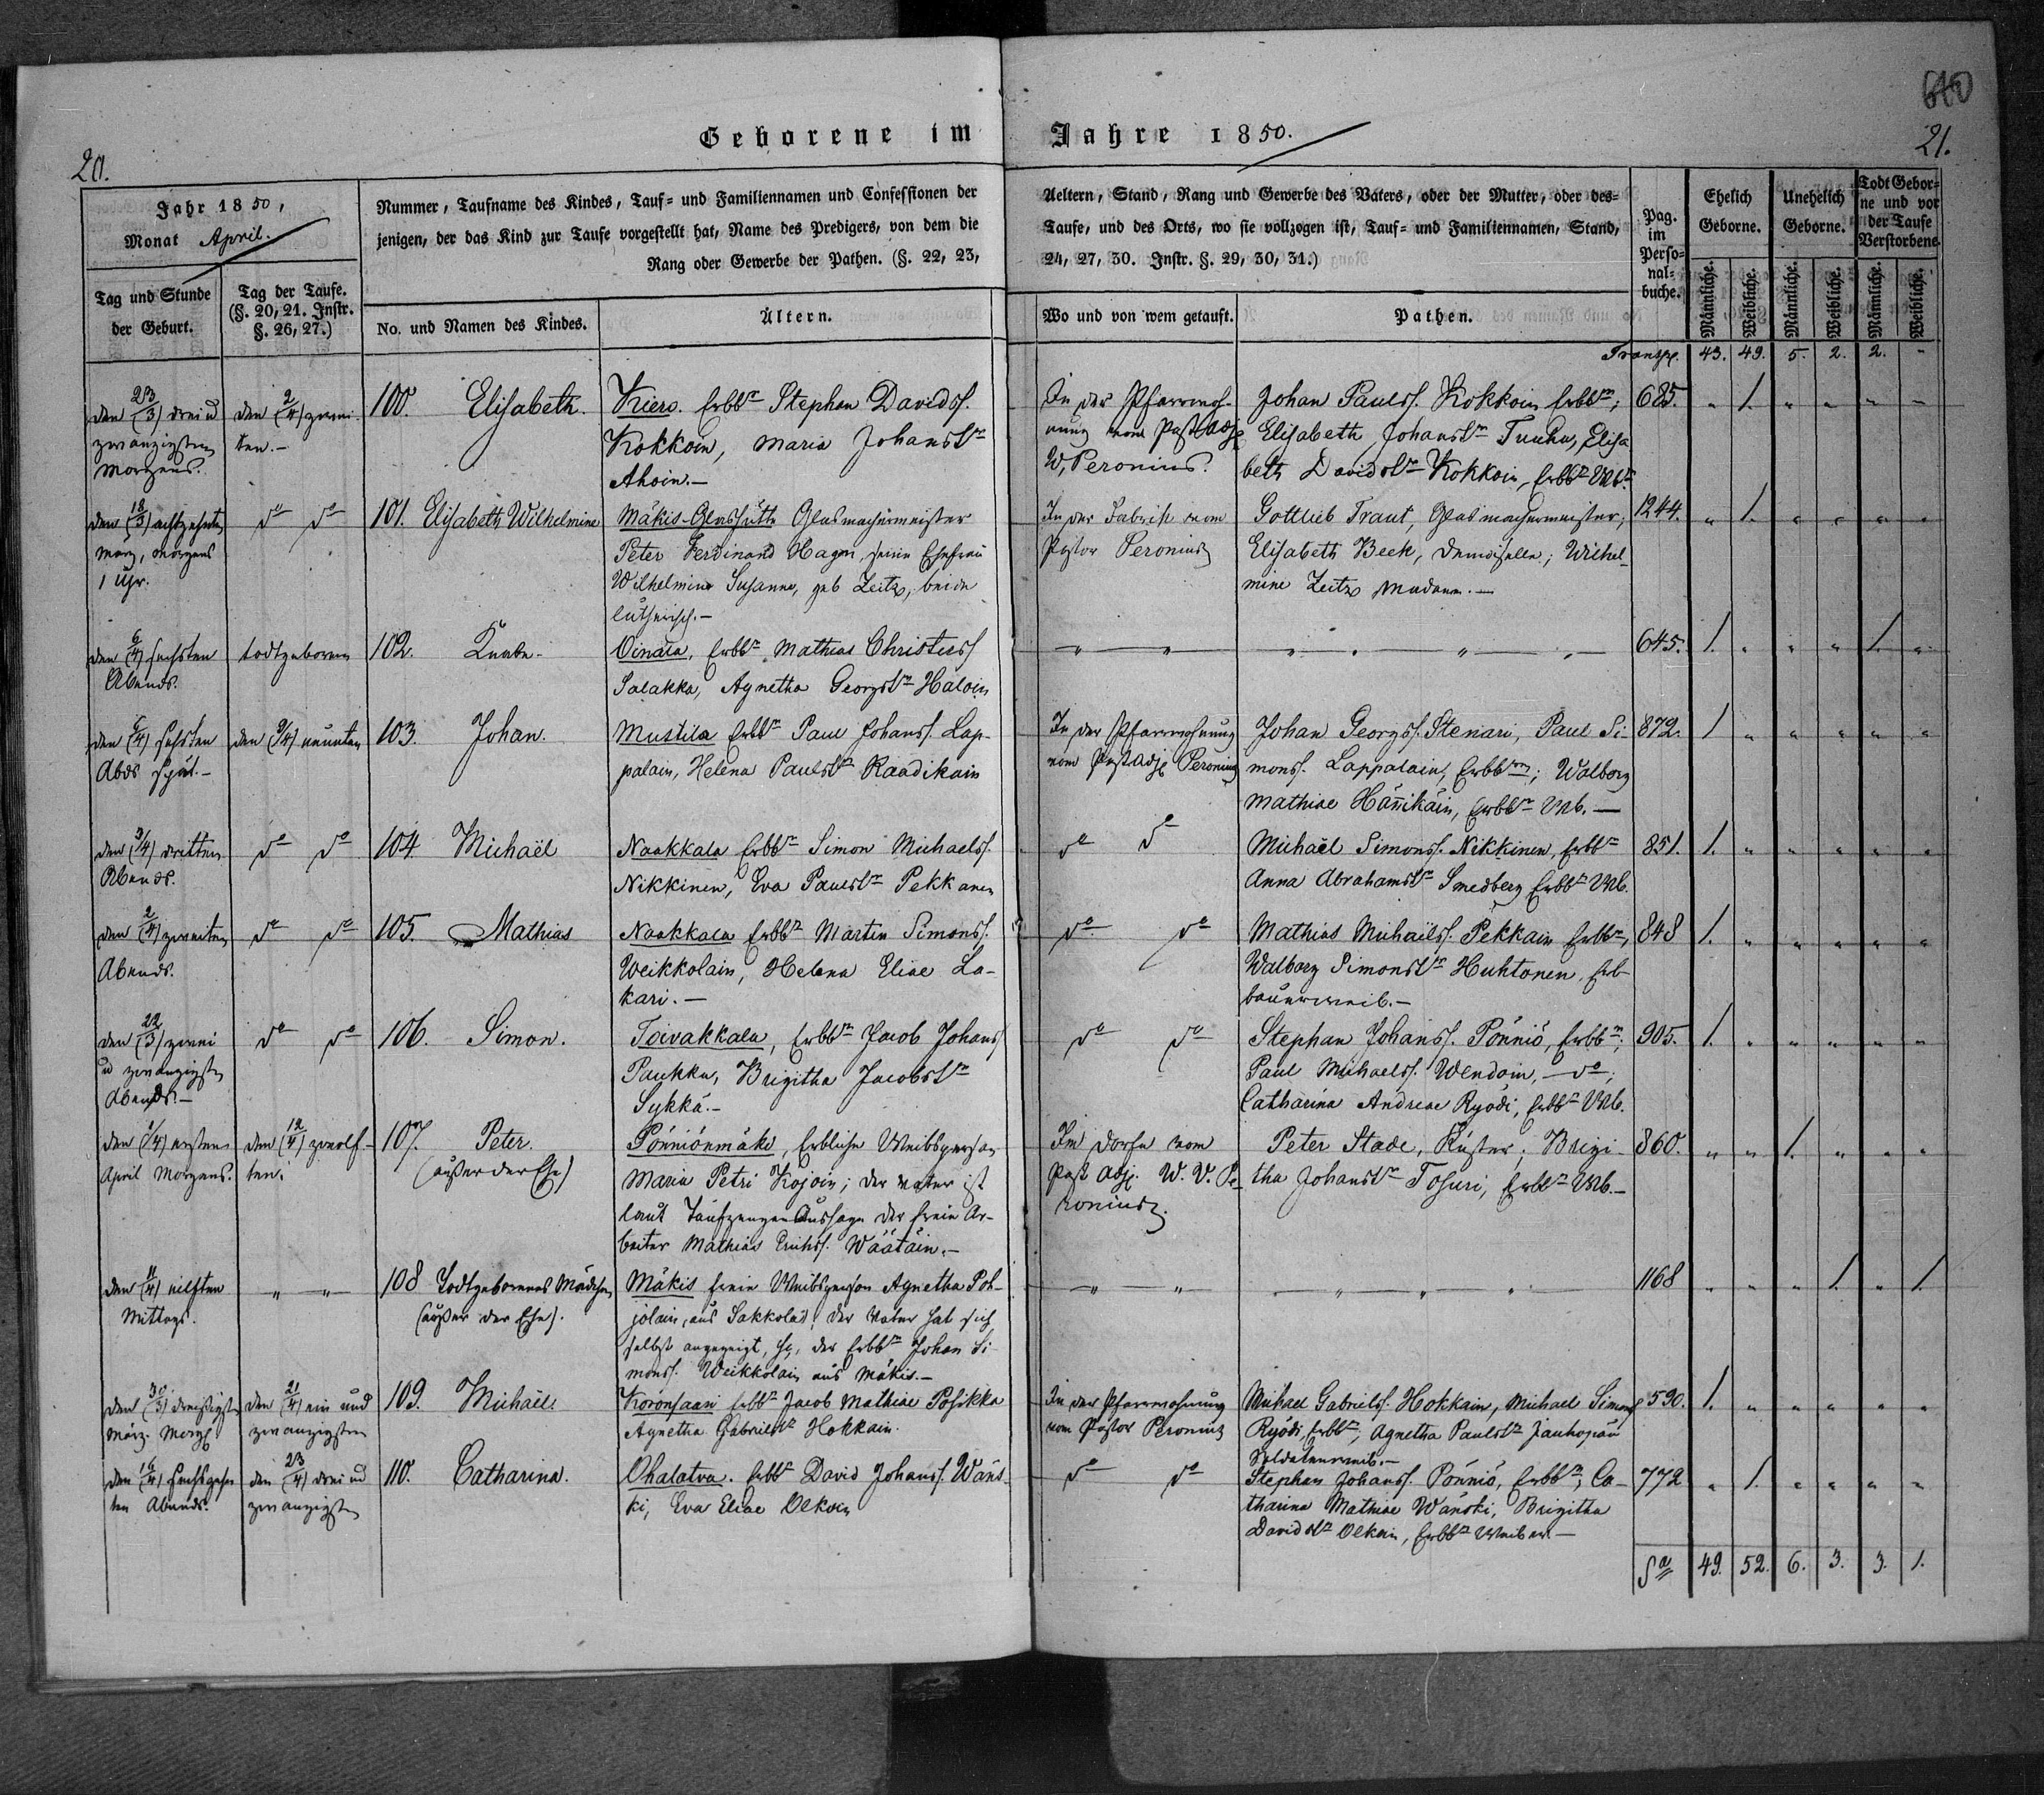 20.
Geborene im Jahre 1850.
21.
Jahr 1850,
Monat April.
Tag und Stunde der Geburt.
Tag der Taufe. (§. 20, 21. Instr. §. 26, 27.)
Nummer, Taufname des Kindes, Tauf= und Familiennamen und Confessionen der Aeltern, Stand, Rang und Gewerbe des Vaters, oder der Mutter, oder des=
jenigen, der das Kind zur Taufe vorgestellt hat, Name des Predigers, von dem die Taufe, und des Orts, wo sie vollzogen ist, Tauf= und Familiennamen, Stand,
Rang oder Gewerbe der Pathen. (§. 22, 23, 24, 27, 30. Instr. §. 29, 30, 31.)
No. und Namen des Kindes.
Ältern.
Wo und von wem getauft.
Pathen.
Pag. im Perso=nal=buche.
Ehelich Geborne.
Unehelich Geborne.
Todt Gebor=ne und vor der Taufe Verstorbene
Männliche. Weibliche. Männliche. Weibliche. Männliche. Weibliche.
Transp. 43. 49. 5. 2. 2. -
den (23/3) drei u
zwanzigsten
Morgens.
den (2/4) zwei-
ten.-
100. Elisabeth.
Kiero. Erbbr Stephan Davidss.
Kokkoin, Maria Johanstr
Ahoin.-
In der Pfarrwoh-
nung vom Past Adj
W. Peronius.
Johan Paulss. Kokkoin Erbbr;
Elisabeth Johanstr Tuuhu, Elisa
beth Davidstr Kokkoin, Erbbr Wb.
685. " 1. " " " "
den (18/3) achtzehnten
März, Morgens
1 Uhr.
do do
101. Elisabeth Wilhelmine
Mäkis-Glashütte Glasmachermeister
Peter Ferdinand Hagen, seine Ehefrau
Wilhelmine Susanna, geb Zeitz, beide
lutherisch.-
In der Fabrik vom
Pastor Peronius
Gottlieb Traut, Glasmachermeister;
Elisabeth Beck, Demoiselle; Wilhel-
mine Zeitz Madame.-
1244. " 1. " " " "
den (6/4) sechsten
Abends.
todtgeboren
102. Knabe.
Oinala, Erbbr Mathias Christiss
Salakka, Agnetha Georgstr Haloin
645. 1. " " " 1. "
den (6/4) sechsten
Abds spät.-
den (9/4) neunten
103. Johan.
Mustila Erbbr Paul Johanss. Lap-
palain, Helena Paulstr Raadikain
In der Pfarrwohnung
vom Past Adj Peronius
Johan Georgss. Stenari, Paul Si-
monss. Lappalain, Erbbrn; Walborg
Mathiae Hännikäin, Erbbr Wb.-
872. 1 " " " " "
den (3/4) dritten
Abends.
do do
104. Michaël
Naakkala Erbbr Simon Michaelss.
Nikkinen, Eva Paulstr Pekkanen
do do
Michaël Simonss. Nikkinen, Erbbr
Anna Abrahamstr Smedberg Erbbr Wb.
851. 1. " " " " "
den (2/4) zweiten
Abends.
do do
105. Mathias
Naakkala Erbbr Martin Simonss.
Weikkolain, Helena Eliae La-
kari.-
do do
Mathias Michaelss. Pekkain Erbbr,
Walborg Simonstr Huhtonen, Erb-
bauerweib.-
848 1. " " " " "
den (22/3) zwei
u zwanzigsten
Abends.-
do do
106. Simon.
Toivakkala, Erbbr Jacob Johanss
Paukku, Brigitha Jacobstr
Sykkä.-
do do
Stephan Johanss. Pönniö, Erbbr;
Paul Michaelss. Wendoin, do;
Catharina Andreae Ryödi, Erbbr Wb.
905. 1. " " " " "
den (1/4) ersten
April Morgens.
den (12/4) zwölf-
ten.
107. Peter.
(außer der Ehe)
Pönniönmäki, Erbliche Weibsperson
Maria Petri Kojoin; der Vater ist
laut Taufzeugen Aussage der freie Ar-
beiter Mathias Erichss. Wäätäin.-
Im Dorfe vom
Past Adj. W. V. Pe-
ronius.
Peter Stade, Küster; Brigi-
tha Johanstr Tosuri, Erbbr Wb.-
860. " " 1. " " "
den (11/4) eilften
Mittags.
" "
108 Todtgeborenes Mädchen
(außer der Ehe).
Mäkis freie Weibsperson Agnetha Poh-
jolain, aus Sakkola; der Vater hat sich
selbst angezeigt, der Erbbr Johan Si-
monss. Weikkolain aus Mäkis.-
1168 " " " 1. " 1.
den (30/3) dreißigsten
März. Morg
den (21/4) ein und
zwanzigsten
109. Michaël.
Koronsaari Erbbr Jacob Mathiae Posikka
Agnetha Gabrielstr Hokkain.
In der Pfarrwohnung
vom Pastor Peronius
Michael Gabrielss. Hokkain, Michael Simonss
Ryödi, Erbbr; Agnetha Paulstr Jauhopää
Soldatenweib.-
590. 1. " " " " "
den (16/4) sechszehn
ten Abends.
den (23/4) drei u
zwanzigsten
110. Catharina.
Ohalatva. Erbbr David Johanss. Wäns-
ki, Eva Eliae Olkoin
do do
Stephan Johanss. Pönniö, Erbbr; Ca-
tharina Mathiae Wänski, Brigitha
Davidstr Olkoin, Erbbr Weiber.-
772 " 1. " " " "
Sa 49. 52. 6. 3. 3. 1.